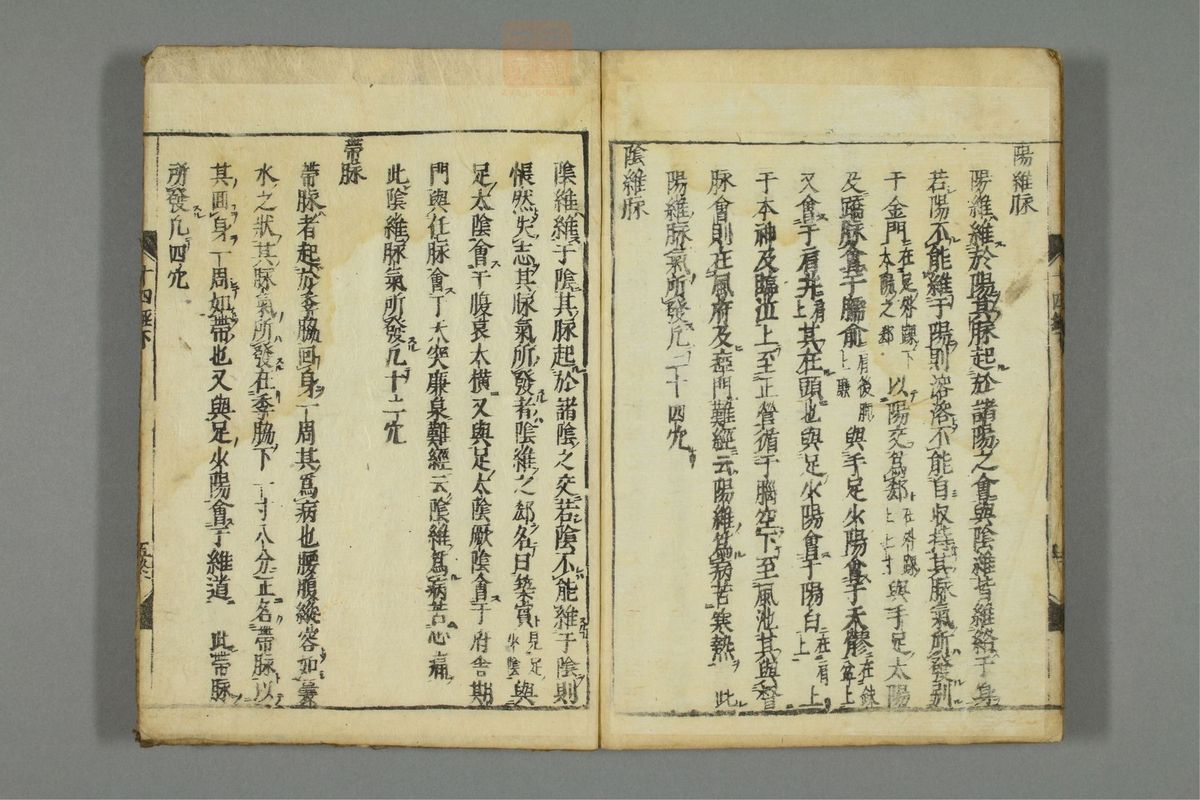 陽維脉
陽維維於陽其脉起於諸陽之會與陰維皆維絡于身
若陽不能維于陽則溶溶不能自收持其脉氣所發別
于金門在足外踝下太陽之郄以陽交為郄在外踝上七寸與手足太陽
及蹻脉會于臑俞肩後胛上廉與手足少陽會于天髎在缺盆上
又會于肩井肩上其在頭也與足少陽會于陽白在眉上
于本神及臨泣上至正營循于腦空下至風池其與督
脉會則在風府及瘂門難經云陽維為病苦寒熱 此
陽維脉氣所發凡二十四穴
陰維脉
陰維維于陰其脉起於諸陰之交若陰不能維于陰則
悵然失志其脉氣所發者陰維之郄名曰築賓見足少陰與
足太陰會于腹哀大橫又與足太陰厥陰會于府舎期
門與任脉會于天突廉泉難經云陰維為病苦心痛
此陰維脉氣所發凡十二穴
帶脉
帶脉者起於季脇回身一周其為病也腰腹縱容如囊
水之狀其脉氣所發在季脇下一寸八分正名帶脉以
其回身一周如帶也又與足少陽會于維道 此帶脉
所發凡四穴
十四經下